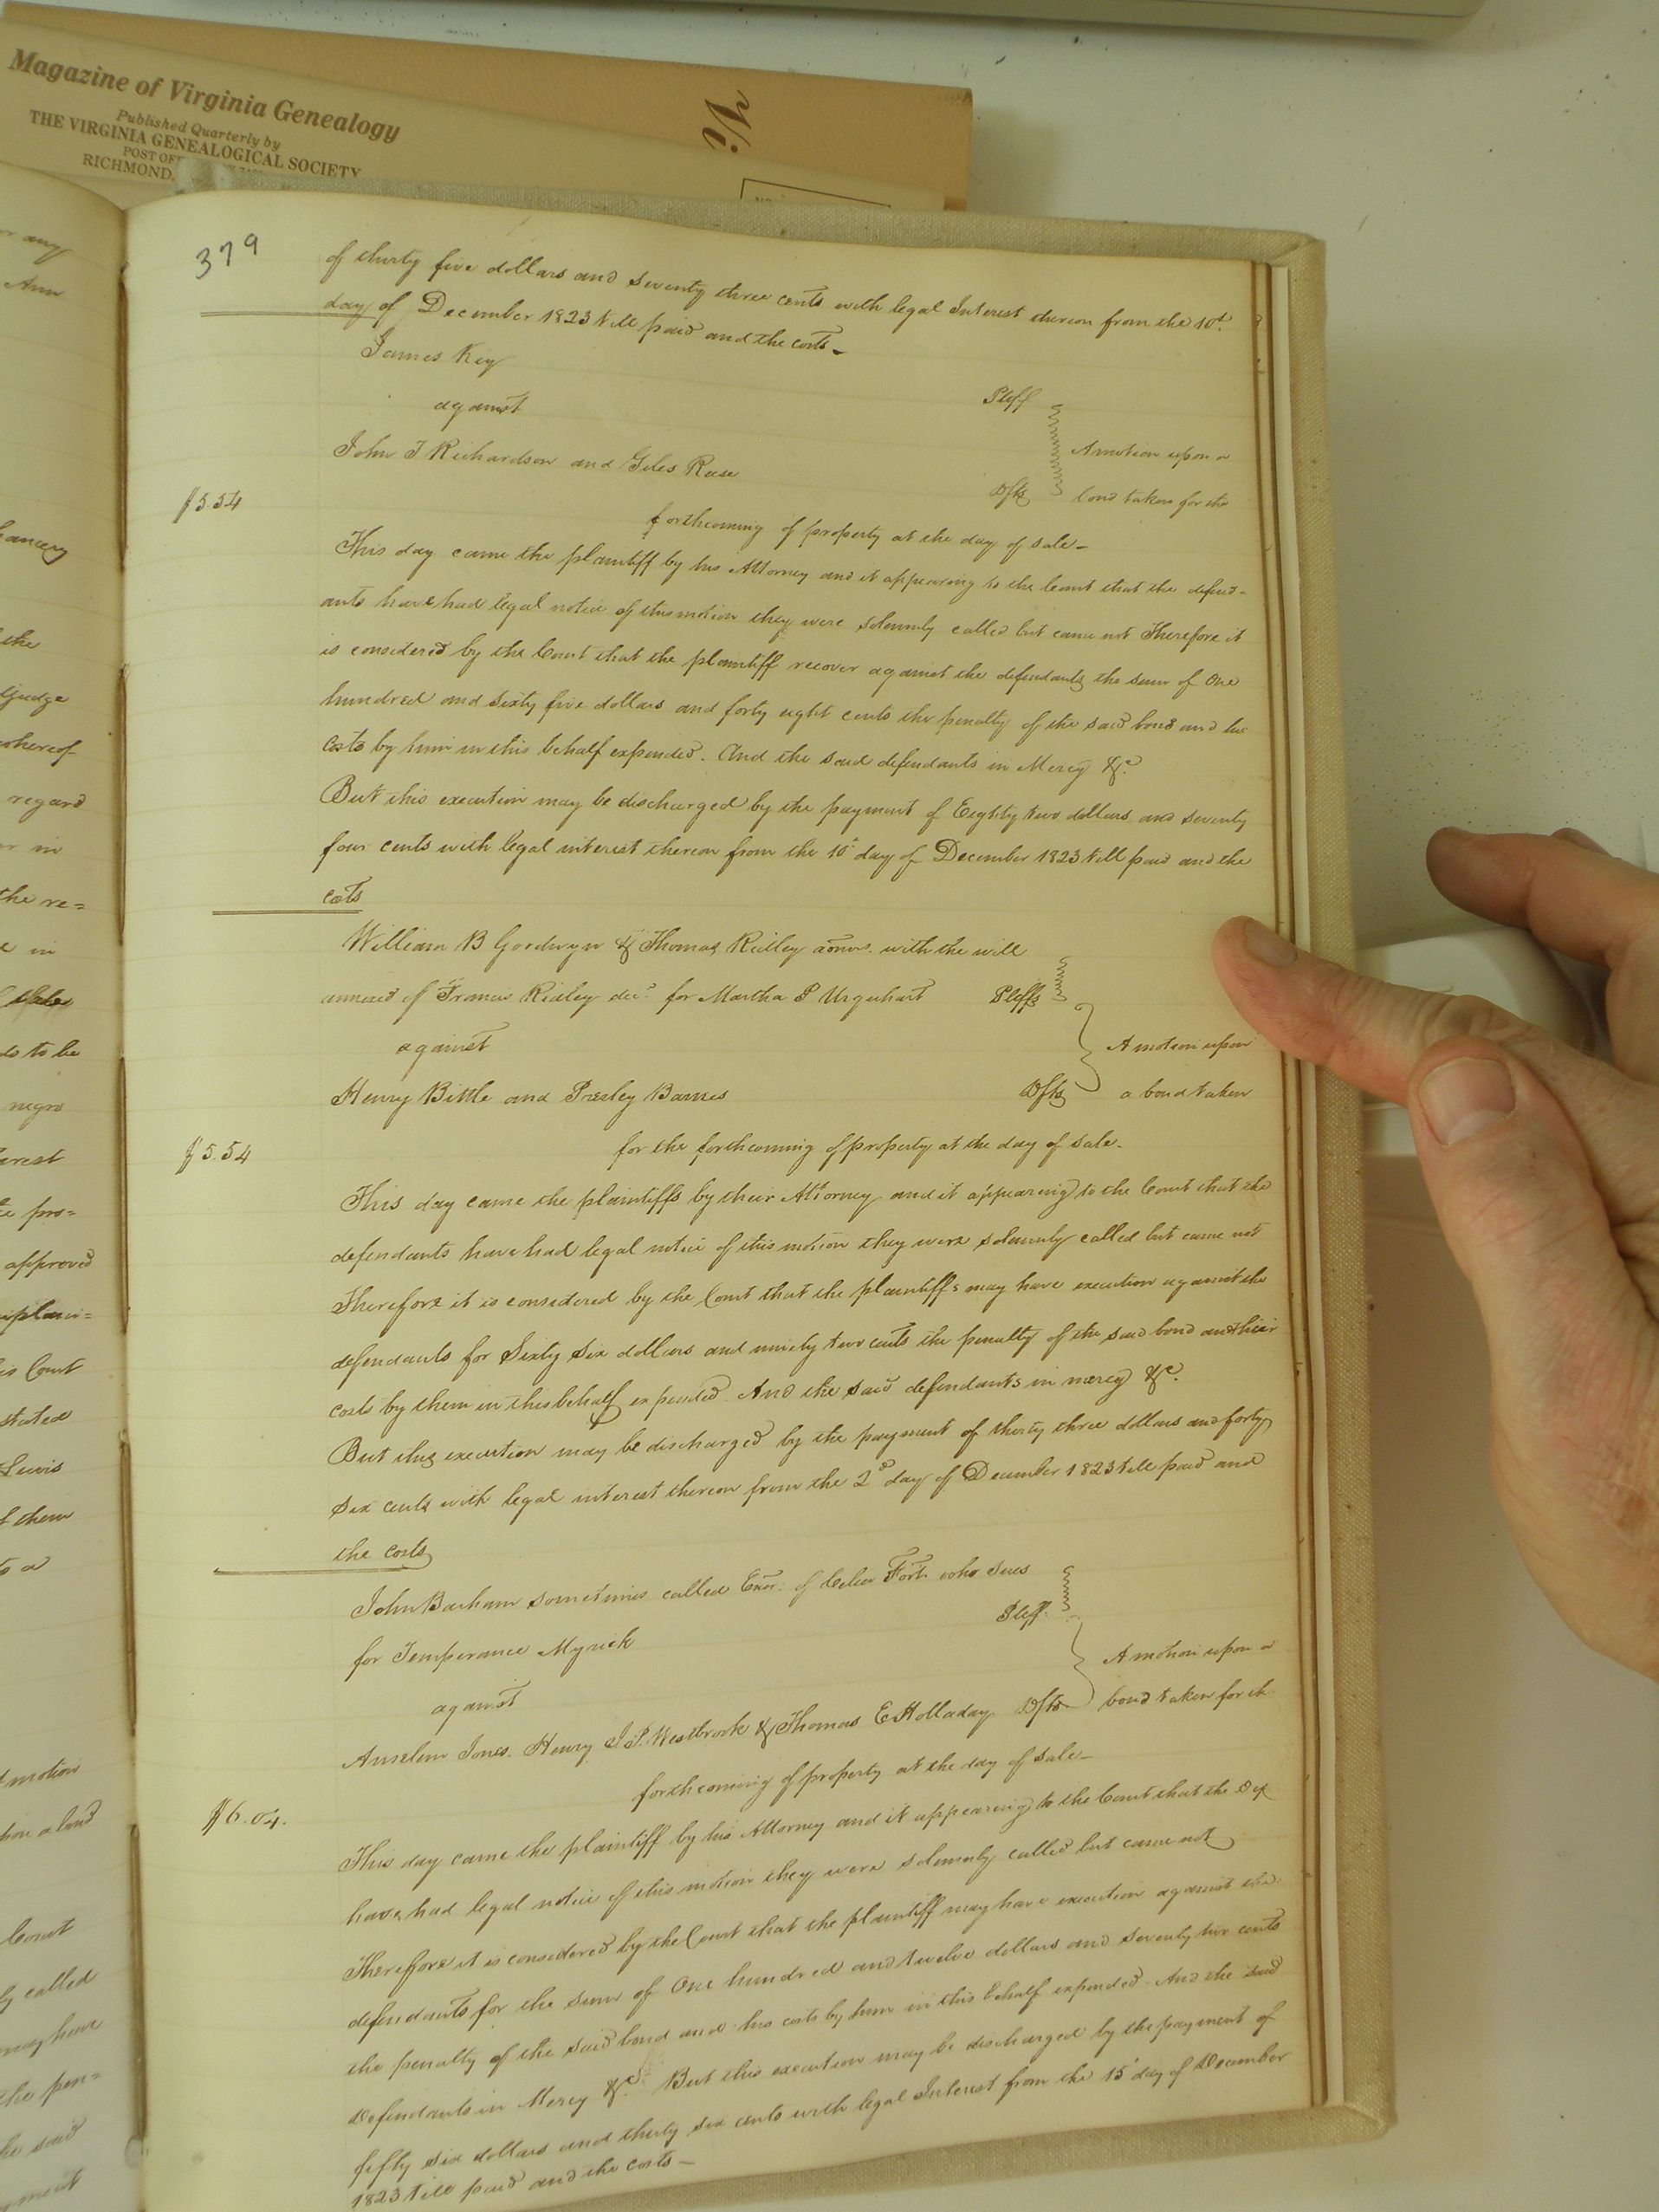 Magazine of Virginia Genealogy
Published Quarterly by
THE VIRGINIA GENEALOGICAL SOCIETY
POST OF
RICHMOND,
Va
379
of thirty five dollars and seventy three cents with legal Interest thereon from the 10th
day of December 1823 till paid and the costs -
James Key
Pltff
against
A motion upon a
John T Richardson and Giles Rose
Dfts
bond taken for the
$5.54
forthcoming of property at the day of sale -
This day came the plaintiff by his Attorney and it appearing to the Court that the defend-
ants have had legal notice of this motion they were solemnly called but came not Therefore it
is considered by the Court that the plaintiff recover against the defendants the sum of One
hundred and sixty five dollars and forty eight cents the penalty of the said bond and his
costs by him in this behalf expended. And the said defendants in Mercy &c.
But this execution may be discharged by the payment of Eighty two dollars and seventy
four cents with legal interest thereon from the 10th day of December 1823 till paid and the
costs
William B Goodwyn & Thomas Ridley admrs. with the will
annexed of Francis Ridley decd for Martha P Urquhart Pltffs
against
A motion upon
Henry Bittle and Presley Barnes Dfts
a bond taken
$5.54
for the forthcoming of property at the day of sale.
This day came the plaintiffs by their Attorney and it appearing to the Court that the
defendants have had legal notice of this motion they were solemnly called but came not
Therefore it is considered by the Court that the plaintiffs may have execution against the
defendants for Sixty six dollars and ninety two cents the penalty of the said bond and their
costs by them in this behalf expended And the said defendants in mercy &c.
But this execution may be discharged by the payment of thirty three dollars and forty
six cents with legal interest thereon from the 2d day of December 1823 till paid and
the costs
John Barham sometimes called Exor. of Celia Fort who sues
Pltff.
for Temperance Myrick
A motion upon a
against
Anselem Jones. Henry J.P. Westbrook & Thomas E Holladay Dfts
bond taken for the
forthcoming of property at the day of sale -
$6.04.
This day came the plaintiff by his Attorney and it appearing to the Court that the Def
have had legal notice of this motion they were solemnly called but came not
Therefore it is considered by the Court that the plaintiff may have execution against the
defendants for the sum of One hundred and twelve dollars and seventy two cents
the penalty of the said bond and his costs by him in this behalf expended. And the said
Defendants in Mercy &c. But this execution may be discharged by the payment of
fifty six dollars and thirty six cents with legal Interest from the 15 day of December
1823 till paid and the costs -